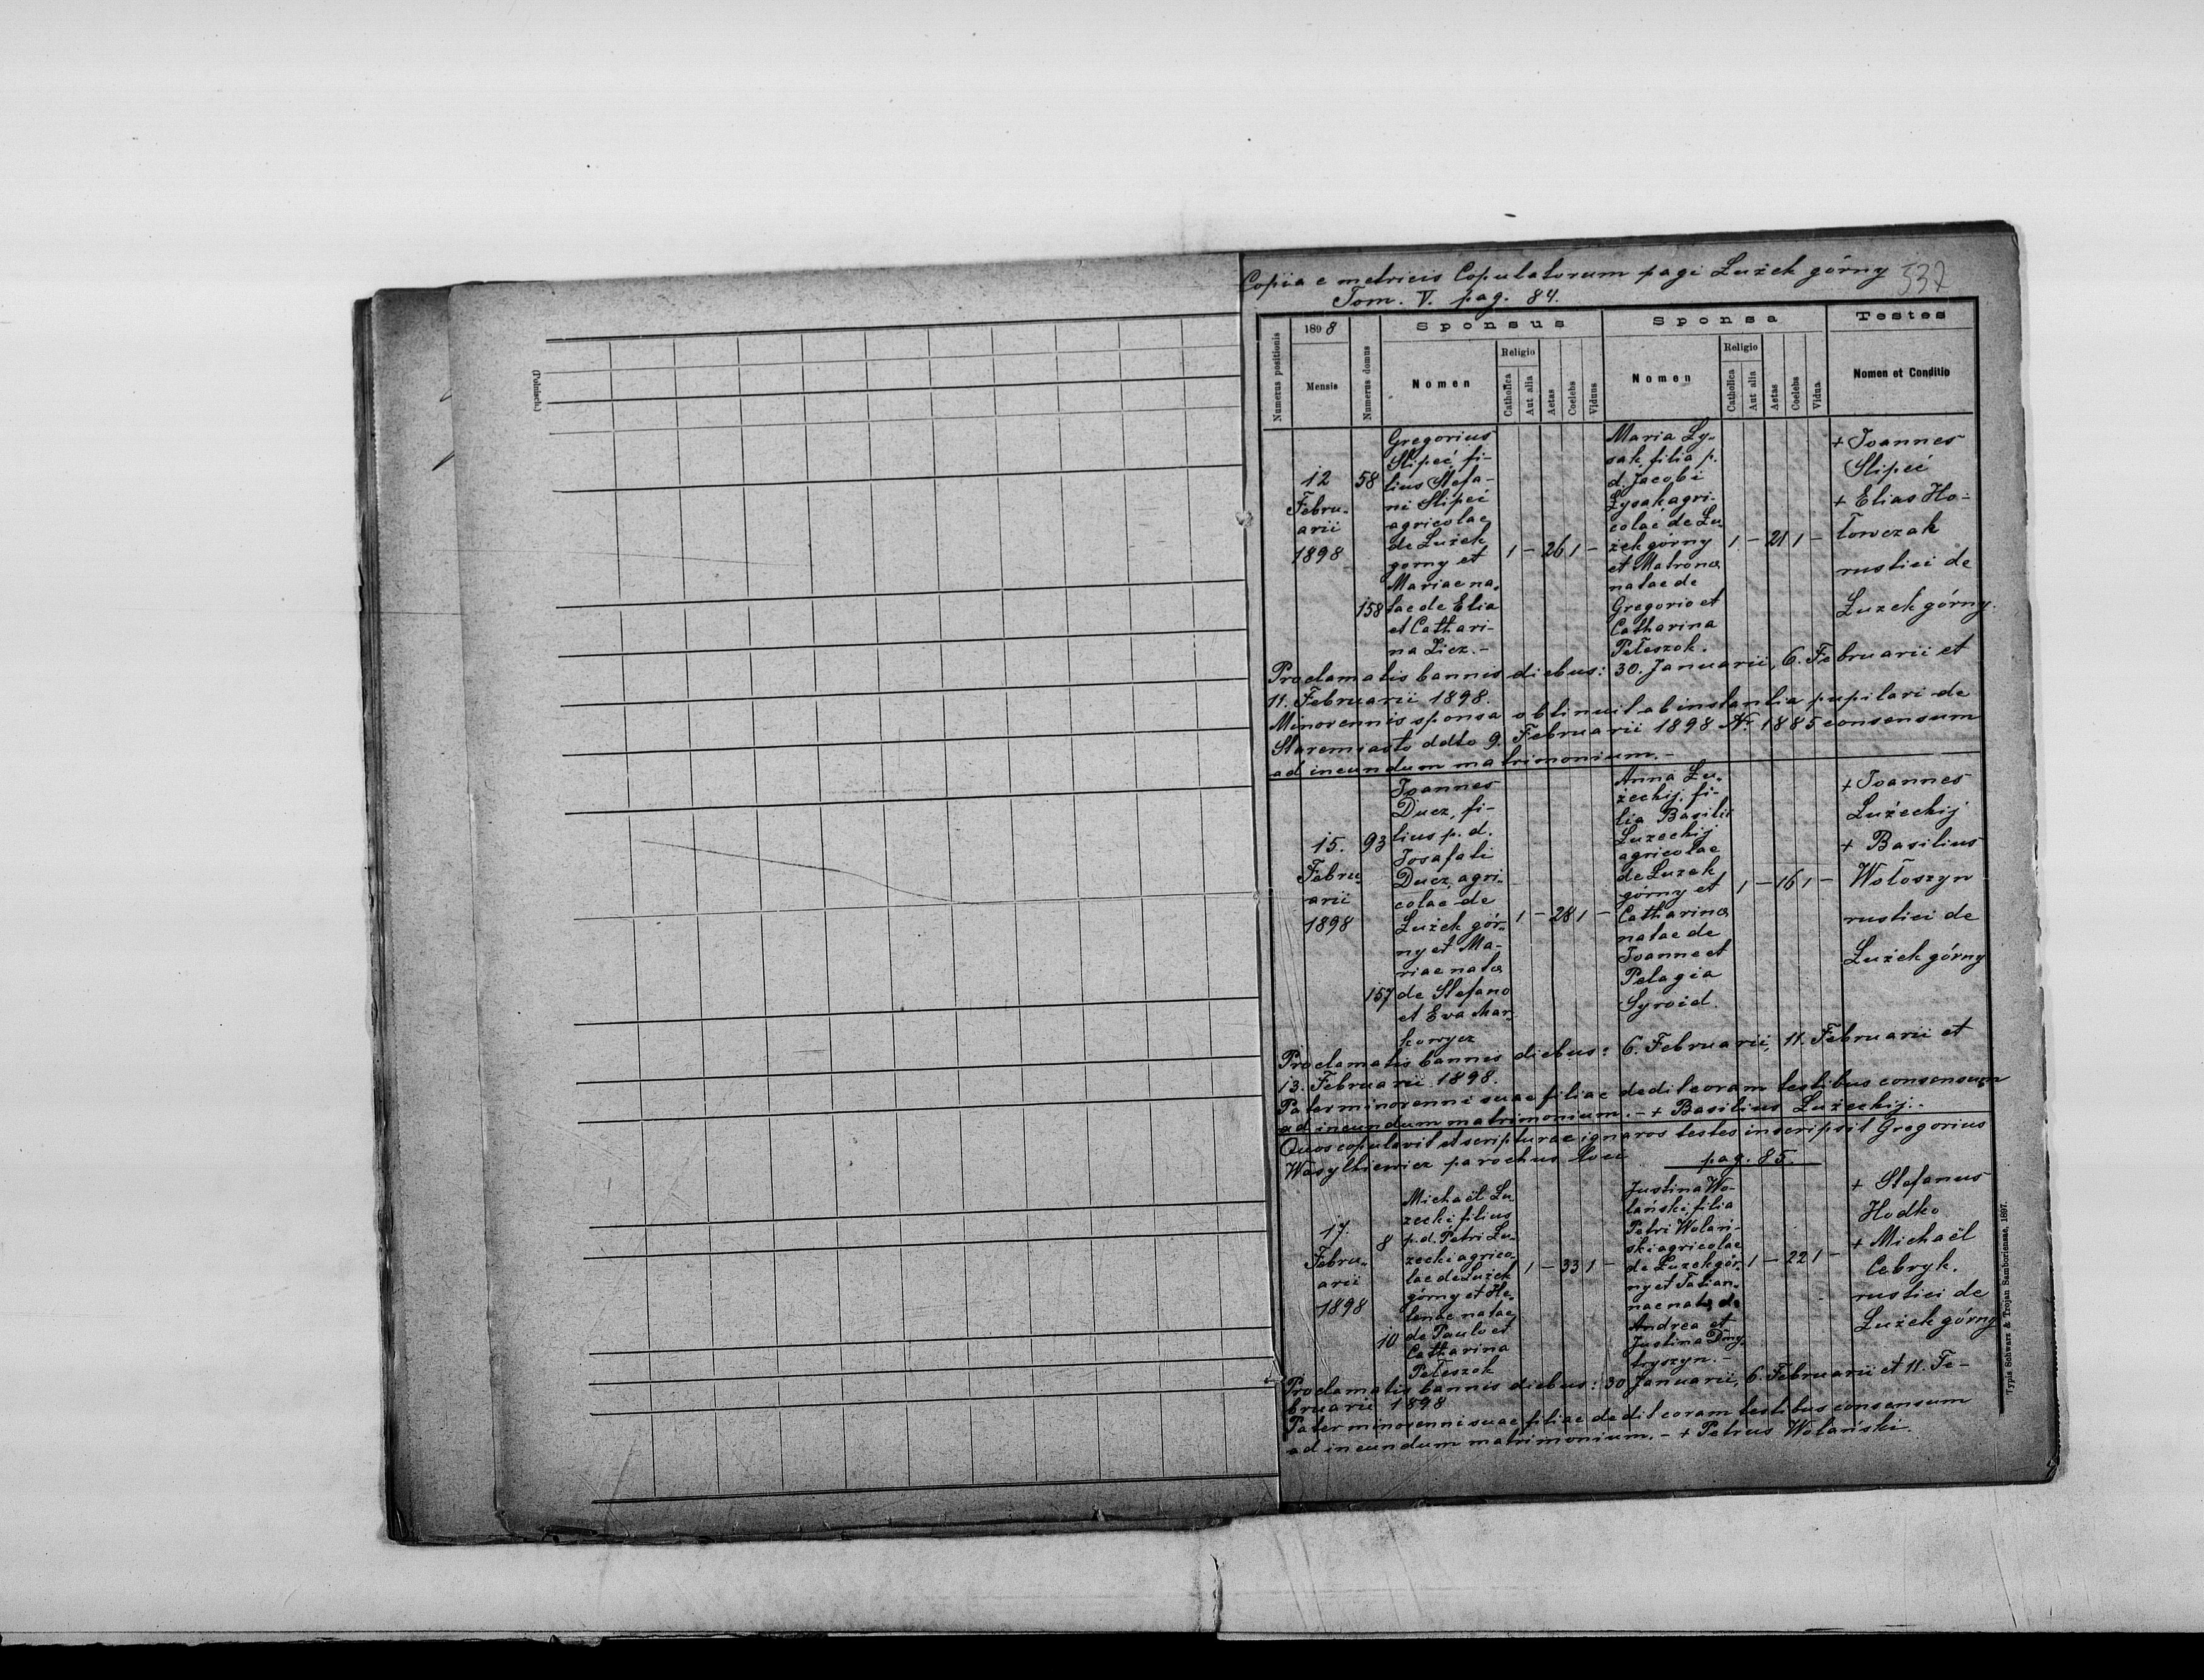 Copia e metricis Copulatorum pagi Lużek górny 337
Tom. V. pag. 84.
(Polnisch.)
Numerus positionis
1898
Mensis
Numerus domus
Sponsus
Nomen
Religio
Catholica
Aut alia
Aetas
Coelebs
Viduus
Sponsa
Nomen
Religio
Catholica
Aut alia
Aetas
Coelebs
Vidua
Testes
Nomen et Conditio
12
Febru-
arii
1898
58
158
Gregorius
Slipeć fi-
lius Stefa-
ni Slipeć
agricolae
de Lużek
gorny et
Mariae na-
tae de Elia
et Cathari-
na Licz.-
1 - 26 1 -
Maria Ly-
sak filia p.
d. Jacobi
Lysak agri-
colae de Lu-
żek górny
et Matrona
natae de
Gregorio et
Catharina
Peteszok.
1 - 21 1 -
+ Joannes
Slipeć
+ Elias Ho-
łowczak
rustici de
Lużek górny.
Proclamatis bannis diebus: 30. Januarii, 6. Februarii et
11. Februarii 1898.
Minorennis sponsa obtinuit ab instantia pupilari de
Staremiasto ddto 9. Februarii 1898 Nr 1885 consensum
ad ineundum matrimonium.-
15.
Febru-
arii
1898
93
157
Joannes
Ducz, fi-
lius p. d.
Josafati
Ducz, agri-
colae de
Lużek gór-
ny et Ma-
riae nata
de Stefano
et Eva Mar-
kowycz
1 - 28 1 -
Anna Lu-
żechij, fi-
lia Basilii
Lużechij
agricolae
de Lużek
górny et
Catharina
natae de
Joanne et
Pelagia
Syroid.
1 - 16 1 -
+ Joannes
Lużechij
+ Basilius
Wołoszyn
rustici de
Lużek górny
Proclamatis bannis diebus: 6. Februarii, 11. Februarii et
13. Februarii 1898.
Pater minorenni suae filiae dedit coram testibus consensum
ad ineundum matrimonium.- + Basilius Lużechij.-
Quos copulavit et scripturae ignaros testes inscripsit Gregorius
Wasylkiewicz parochus loci pag. 85.
17.
Febru-
arii
1898
8
10
Michaël Lu-
żecki filius
p. d. Petri Lu-
żecki agrico-
lae de Lużek
górny et He-
lenae natae
de Paulo et
Catharina
Peteszok
1 - 33 1 -
Justina Wo-
lański, filia
Petri Wolań-
ski agricolae
de Lużek gór-
ny et Tatian-
nae nata de
Andrea et
Justina Dmy-
tryszyn.-
1 - 22 1 -
+ Stefanus
Hodko
+ Michaël
Cebryk.
rustici de
Lużek górny
Proclamatis bannis diebus: 30 Januarii, 6. Februarii et 11. Fe-
bruarii 1898
Pater minorenni suae filiae dedit coram testibus consensum
ad ineundum matrimonium.- + Petrus Wolański.
Typis Schwarz & Trojan Samboriensae, 1897.